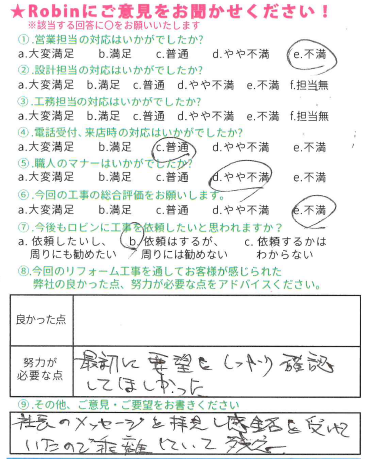 ★Robinにご意見をお聞かせください！
※該当する回答に〇をお願いいたします
①.営業担当の対応はいかがでしたか?
a.大変満足 b.満足 c.普通 d.やや不満 e.不満
②.設計担当の対応はいかがでしたか?
a.大変満足 b.満足 c.普通 d.やや不満 e.不満 f.担当無
③.工務担当の対応はいかがでしたか?
a.大変満足 b.満足 c.普通 d.やや不満 e.不満 f.担当無
④.電話受付、来店時の対応はいかがでしたか?
a.大変満足 b.満足 c.普通 d.やや不満 e.不満
⑤.職人のマナーはいかがでしたか?
a.大変満足 b.満足 c.普通 d.やや不満 e.不満
⑥.今回の工事の総合評価をお願いします。
a.大変満足 b.満足 c.普通 d.やや不満 e.不満
⑦.今後もロビンに工事を依頼したいと思われますか？
a. 依頼したいし、 b.依頼はするが、 c. 依頼するかは
周りにも勧めたい 周りには勧めない わからない
⑧.今回のリフォーム工事を通してお客様が感じられた
弊社の良かった点、努力が必要な点をアドバイスください。
良かった点
努力が
必要な点
最初に要望をしっかり確認
してほしかった
⑨.その他、ご意見・ご要望をお書きください
社長のメッセージを拝見し感銘を受けて
いたので乖離していて残念